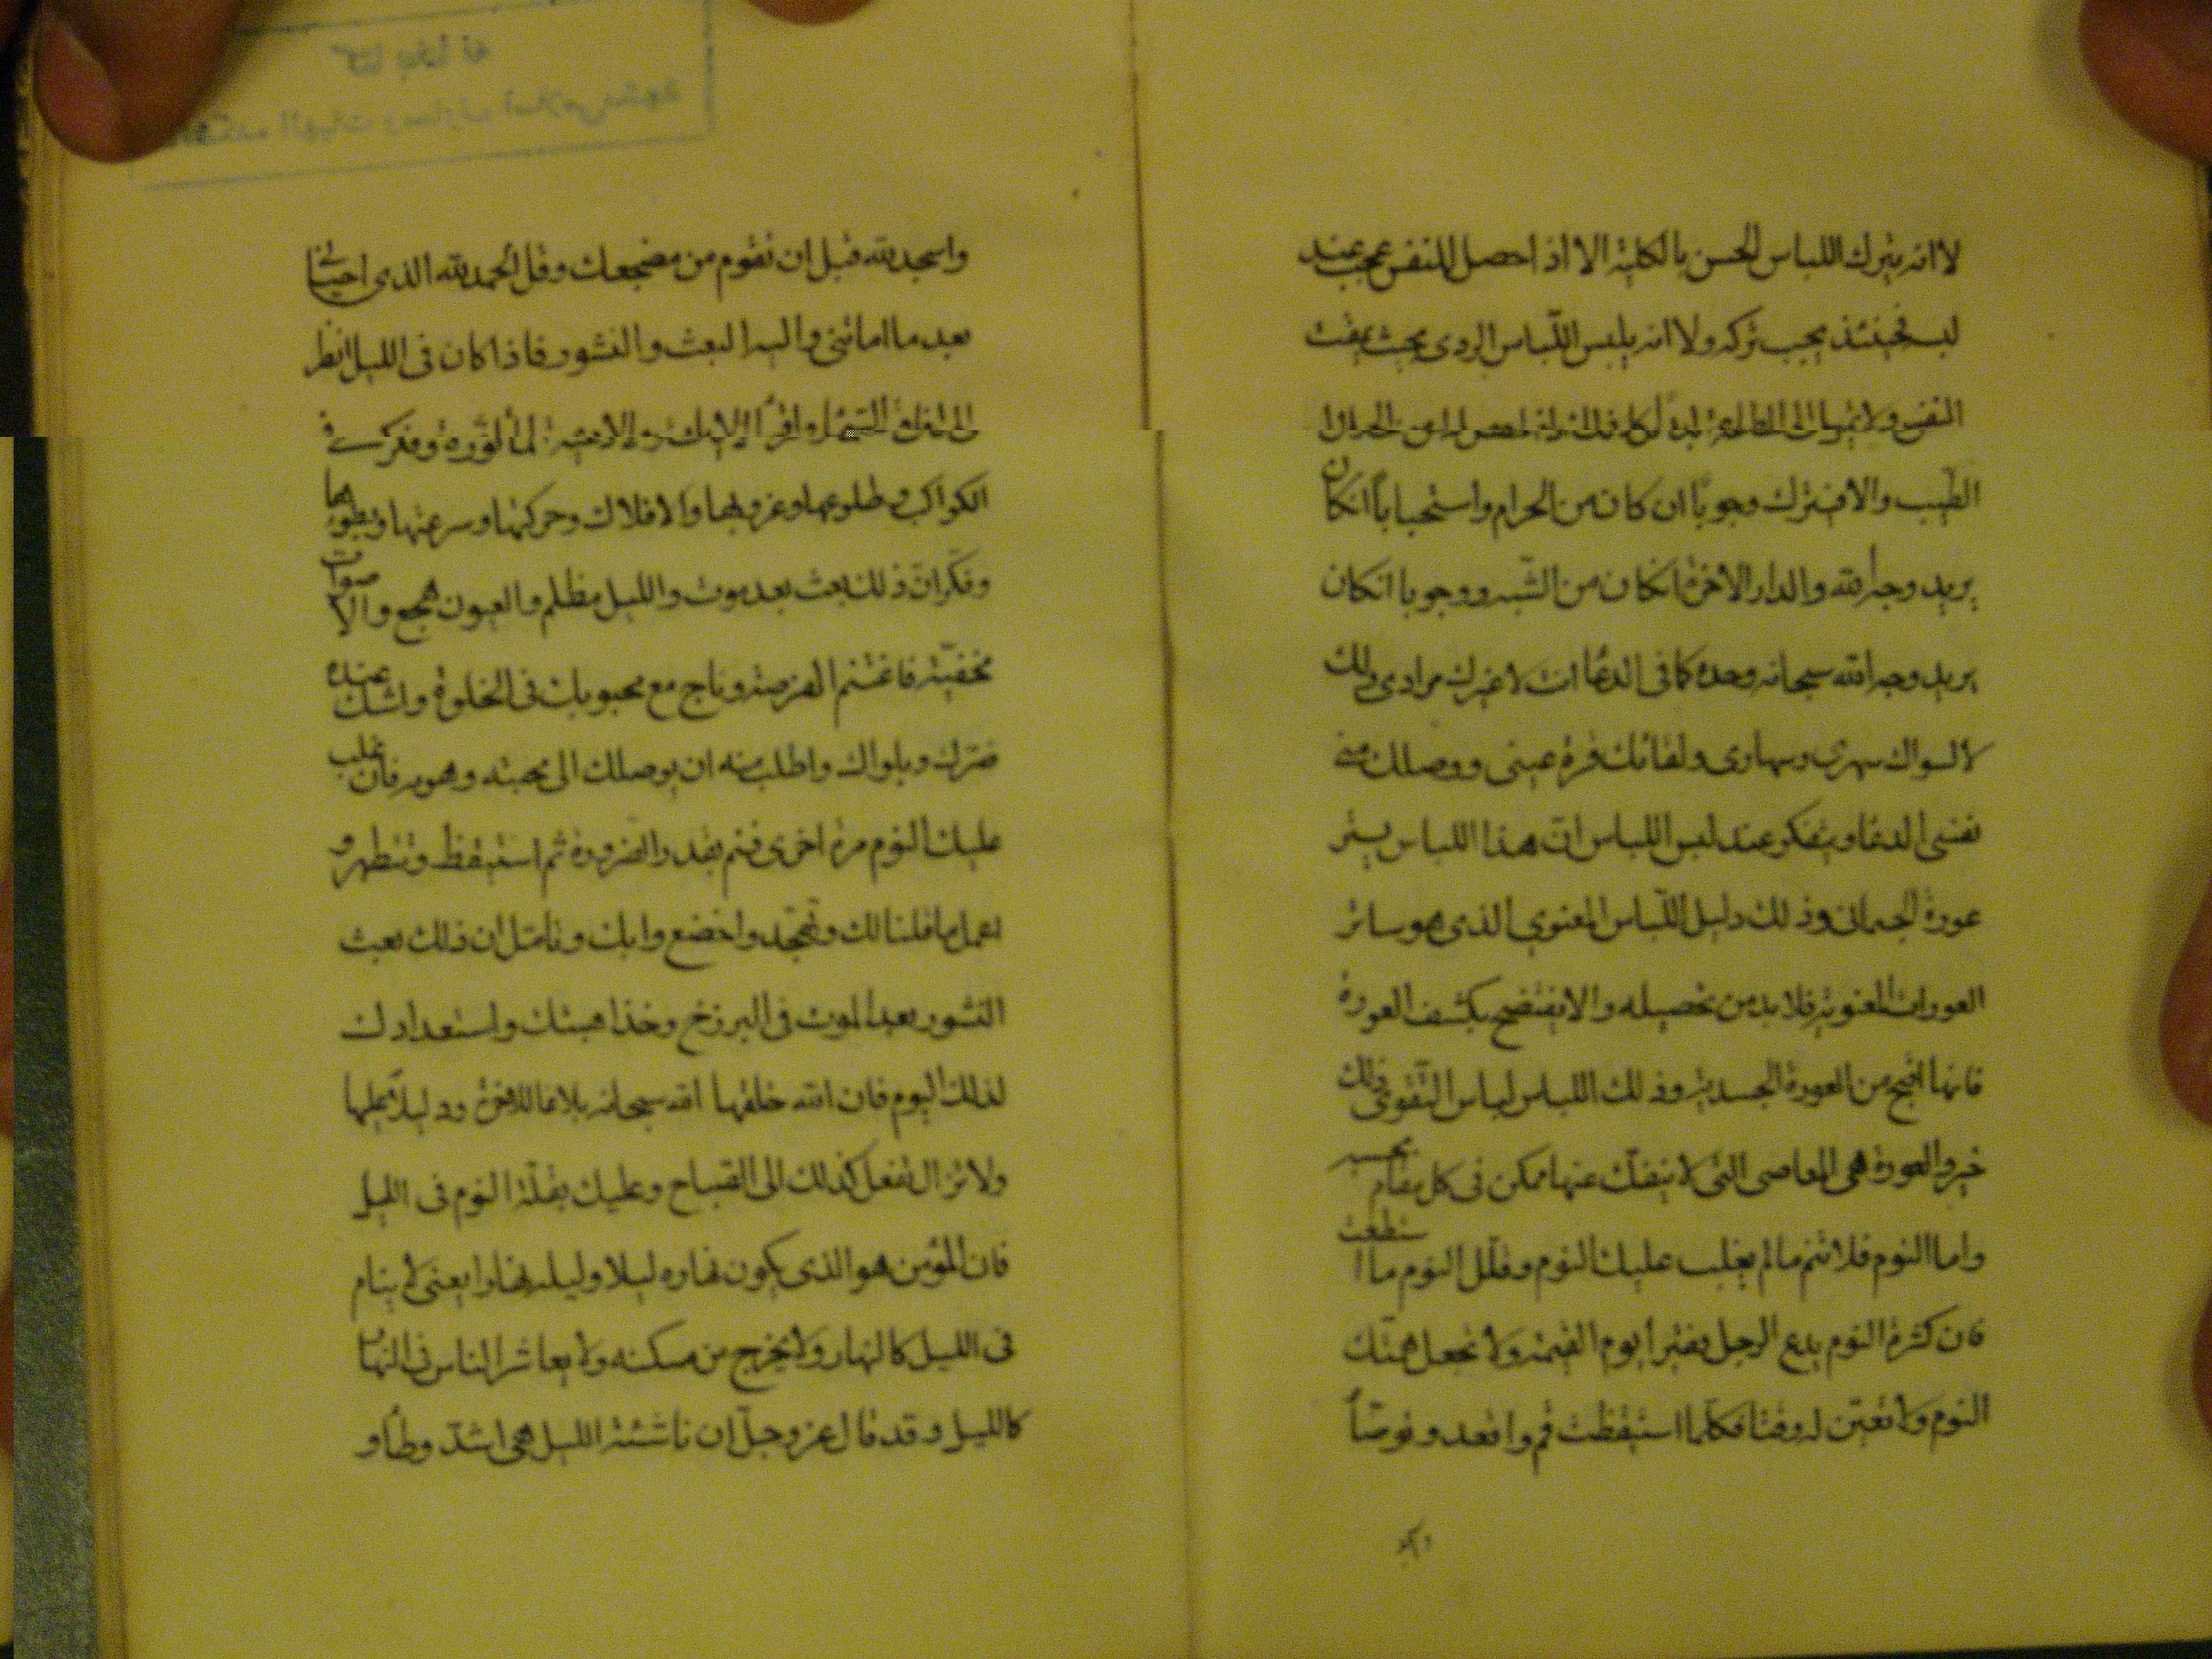 لا انه يترك اللباس الحسن بالكلية الا اذا حصل للنفس عجب عند
لبسه فحينئذ يجب تركه ولا انه يلبس اللباس الردي بحيث
النفس ولا
الطيب والا فيترك وجوبا ان كان من الحرام واستحبابا انكان
يريد وجه الله والدار الاخرة انكان من الشبه ووجوبا انكان
يريد وجه الله سبحانه وحده كما في الدعا انت لا غيرك مرادي ولك
لا لسواك سهري وسهادي ولقائك قرة عيني ووصلك منى
نفسي الدعا ويتفكر عند لبس اللباس ان هذا اللباس يستر
عورة الجسماني وذلك دليل اللباس المعنوي الذي هو ساتر
العورات المعنوية فلا بد من تحصيله والا يفتضح بكشف العورة
فانها اقبح من العورة الجسدية وذلك اللباس لباس التقوى ذلك
خير والعورة هي المعاصي التي لا ينفك عنها ممكن في كل مقام بحسبه
واما النوم فلا تنم ما لم يغلب عليك النوم وقلل النوم ما استطعت
فان كثرة النوم يدع الرجل فقيرا يوم القيمة ولا تجعل همتك
النوم ولا تعين له وقتا فكلما استيقظت قم واقعد وتوضأ
واسجد لله قبل ان تقوم من مضجعك وقل الحمد لله الذي احياني
بعد ما اماتني واليه البعث والنشور فاذا كان في الليل انظر
الى افاق السماء واقرأ الايات وتفكر في
الكواكب وطلوعها وغروبها والافلاك وحركتها وسرعتها وبطؤها
وفكر ان ذلك بعث بعد موت والليل مظلم والعيون هجع والاصوات
مخفية فاغتنم الفرصة وناج مع محبوبك في الخلوة واشك عنده
ضرك وبلواك واطلب منه ان يوصلك الى محبته وهو فان غلب
عليك النوم مرة اخرى فنم بقدر الضرورة ثم استيقظ وتطهر و
اعمل ما قلنا لك وتهجد واخضع وابك وتأمل ان ذلك بعث
النشور بعد الموت في البرزخ وخذ اهبتك واستعدادك
لذلك اليوم فان الله خلقها الله سبحانه بلاغا للاخرة ودليلا عليها
ولا تزال تفعل كذلك الى الصباح وعليك بقلة النوم في الليل
فان المؤمن هو الذي يكون نهاره ليلا وليله نهارا يعني لا ينام
في الليل كالنهار ولا يخرج من مسكنه ولا يعاشر الناس في النهار
كالليل وقد قال عز وجل ان ناشئة الليل هي اشد وطأ و